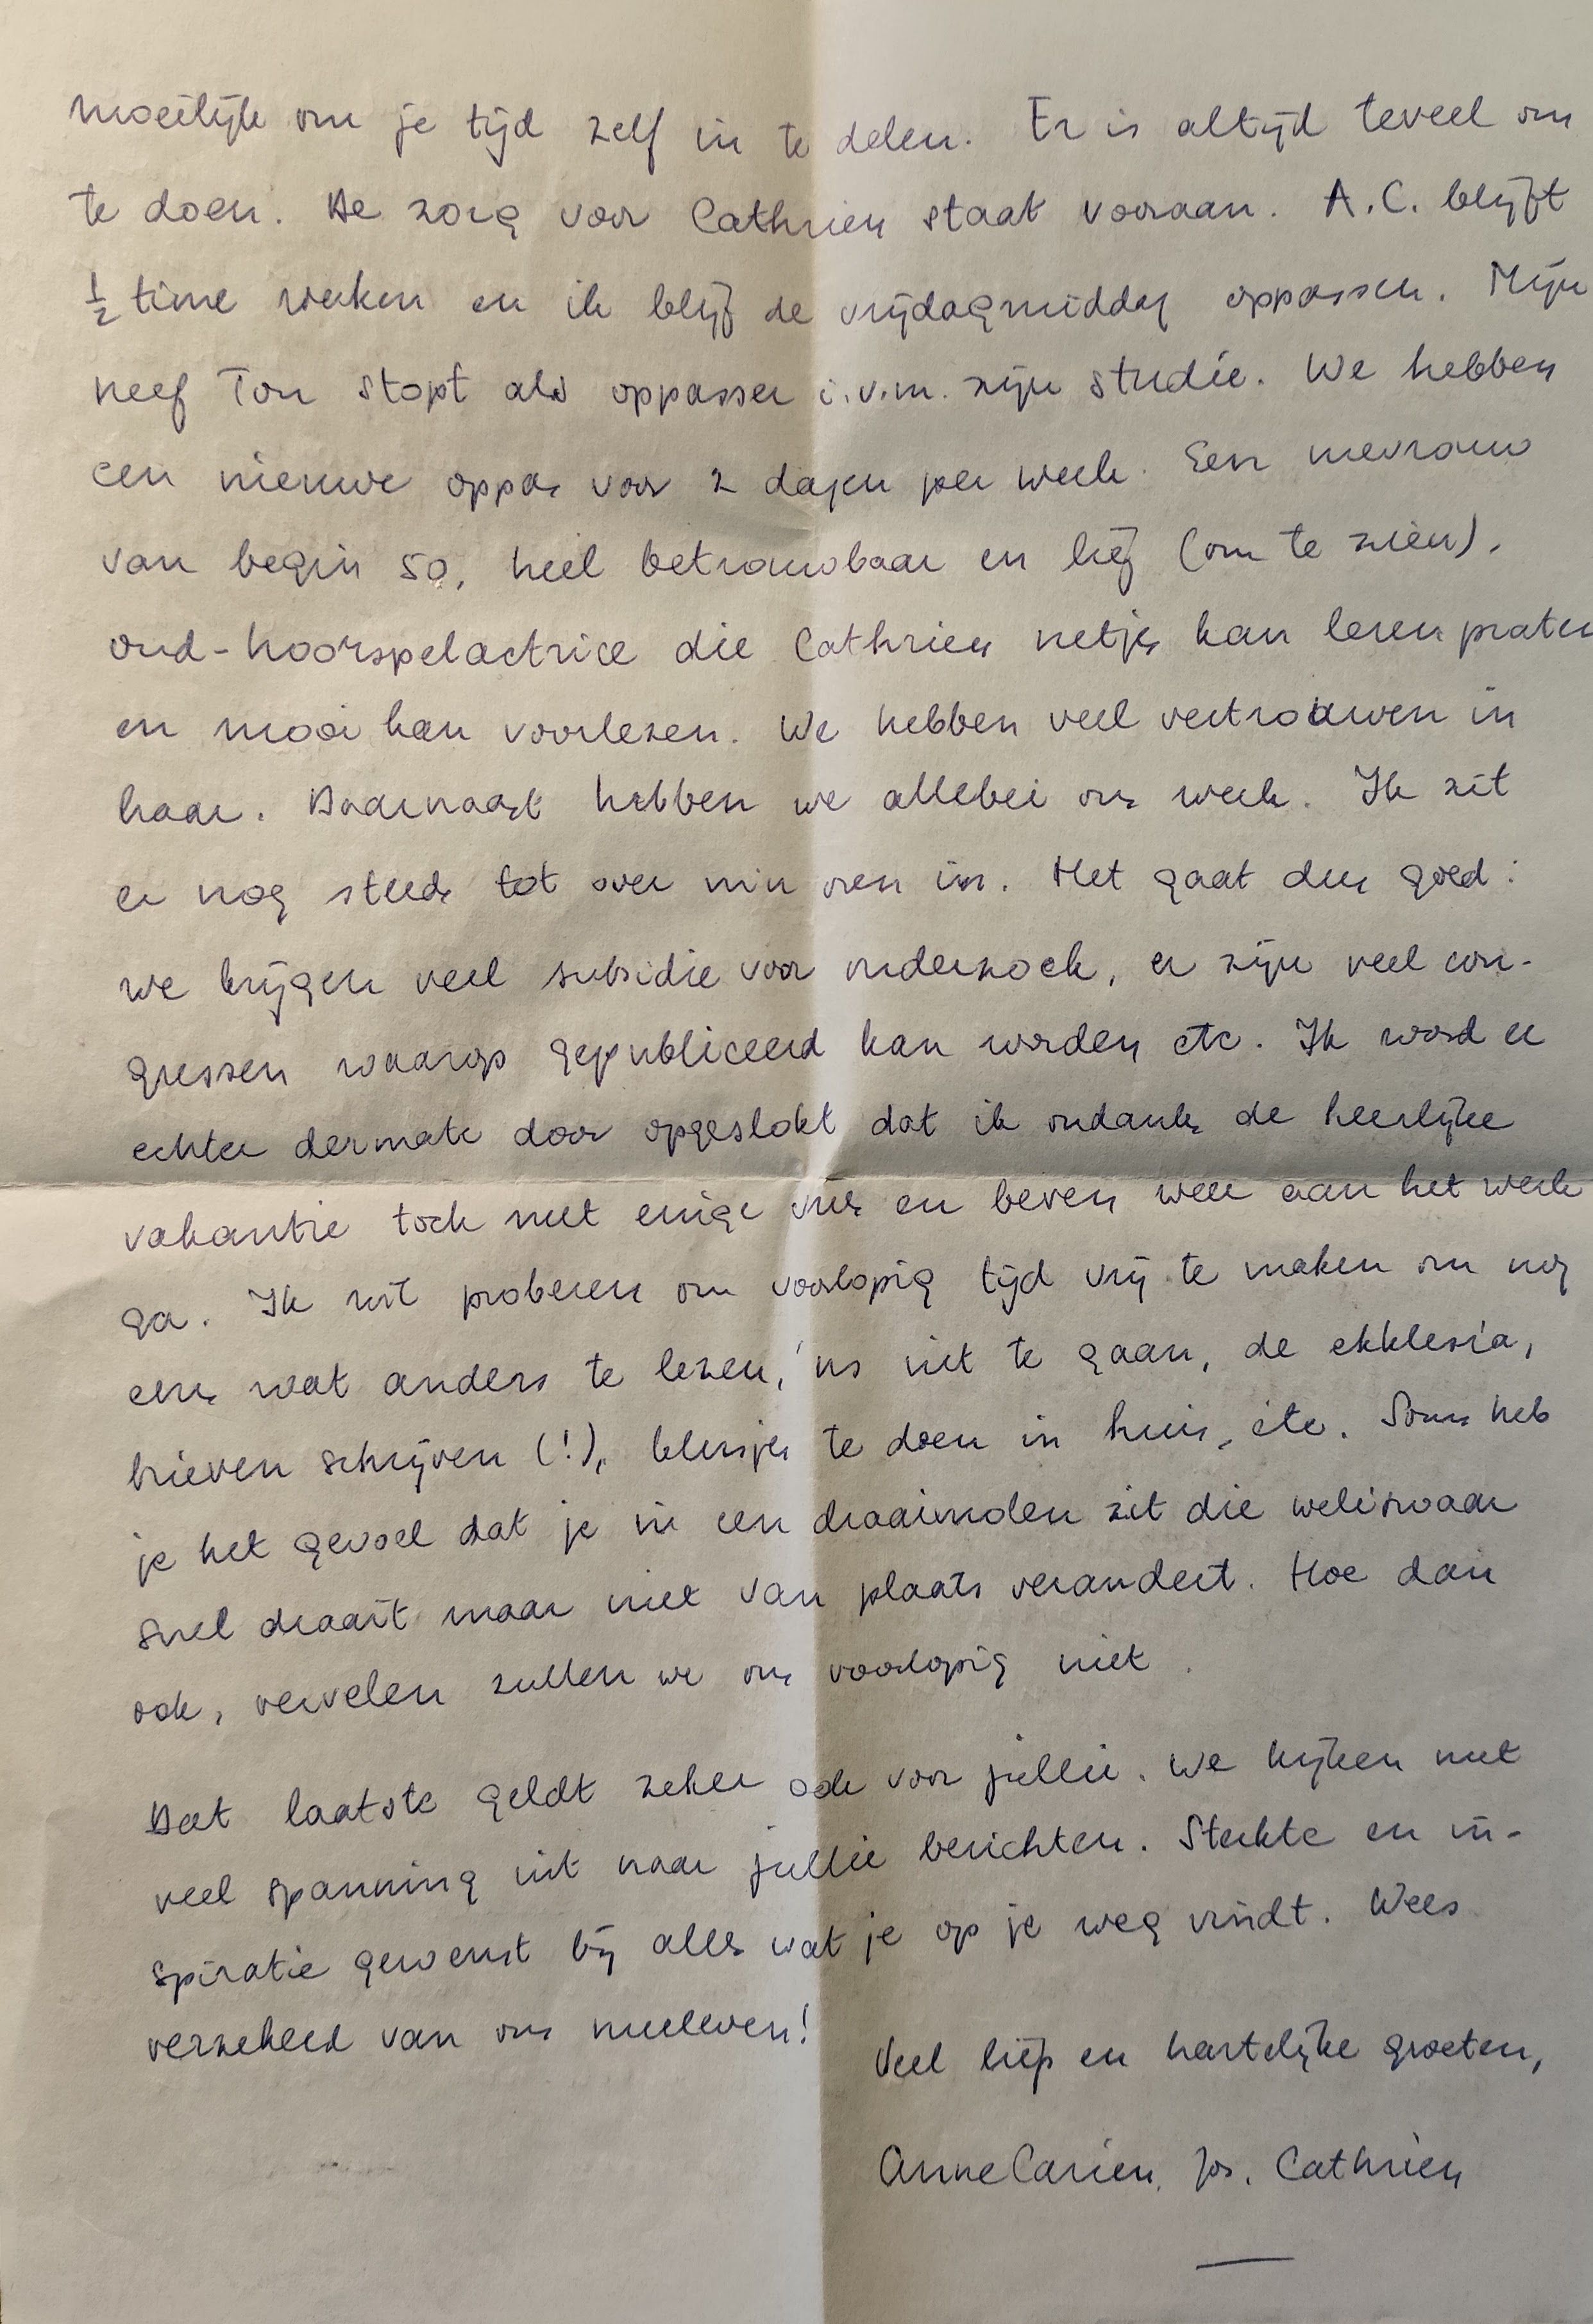 moeilijk om je tijd zelf in te delen. Er is altijd teveel om
te doen. De zorg voor Cathrien staat vooraan. A.C. blijft
½ time werken en ik blijf de vrijdagmiddag oppassen. Mijn
neef Ton stopt als oppasser i.v.m. zijn studie. We hebben
een nieuwe oppas voor 2 dagen per week. Een mevrouw
van begin 50, heel betrouwbaar en lief (om te zien),
oud-hoorspelactrice die Cathrien netjes kan leren praten
en mooi kan voorlezen. We hebben veel vertrouwen in
haar. Daarnaast hebben we allebei ons werk. Ik zit
er nog steeds tot over mijn oren in. Het gaat dus goed:
we krijgen veel subsidie voor onderzoek, er zijn veel con-
gressen waarop gepubliceerd kan worden etc. Ik word er
echter dermate door opgeslokt dat ik ondanks de heerlijke
vakantie toch met enige vrees en beven weer aan het werk
ga. Ik wil proberen om voorlopig tijd vrij te maken om nog
eens wat anders te lezen, 'ns uit te gaan, de ekklesia,
brieven schrijven (!), klusjes te doen in huis, etc. Soms heb
je het gevoel dat je in een draaimolen zit die weliswaar
snel draait maar niet van plaats verandert. Hoe dan
ook, vervelen zullen we ons voorlopig niet.
Dat laatste geldt zeker ook voor jullie. We kijken met
veel spanning uit naar jullie berichten. Sterkte en in-
spiratie gewenst bij alles wat je op je weg vindt. Wees
verzekerd van ons meeleven!
Veel liefs en hartelijke groeten,
AnneCarien, Jos, Cathrien